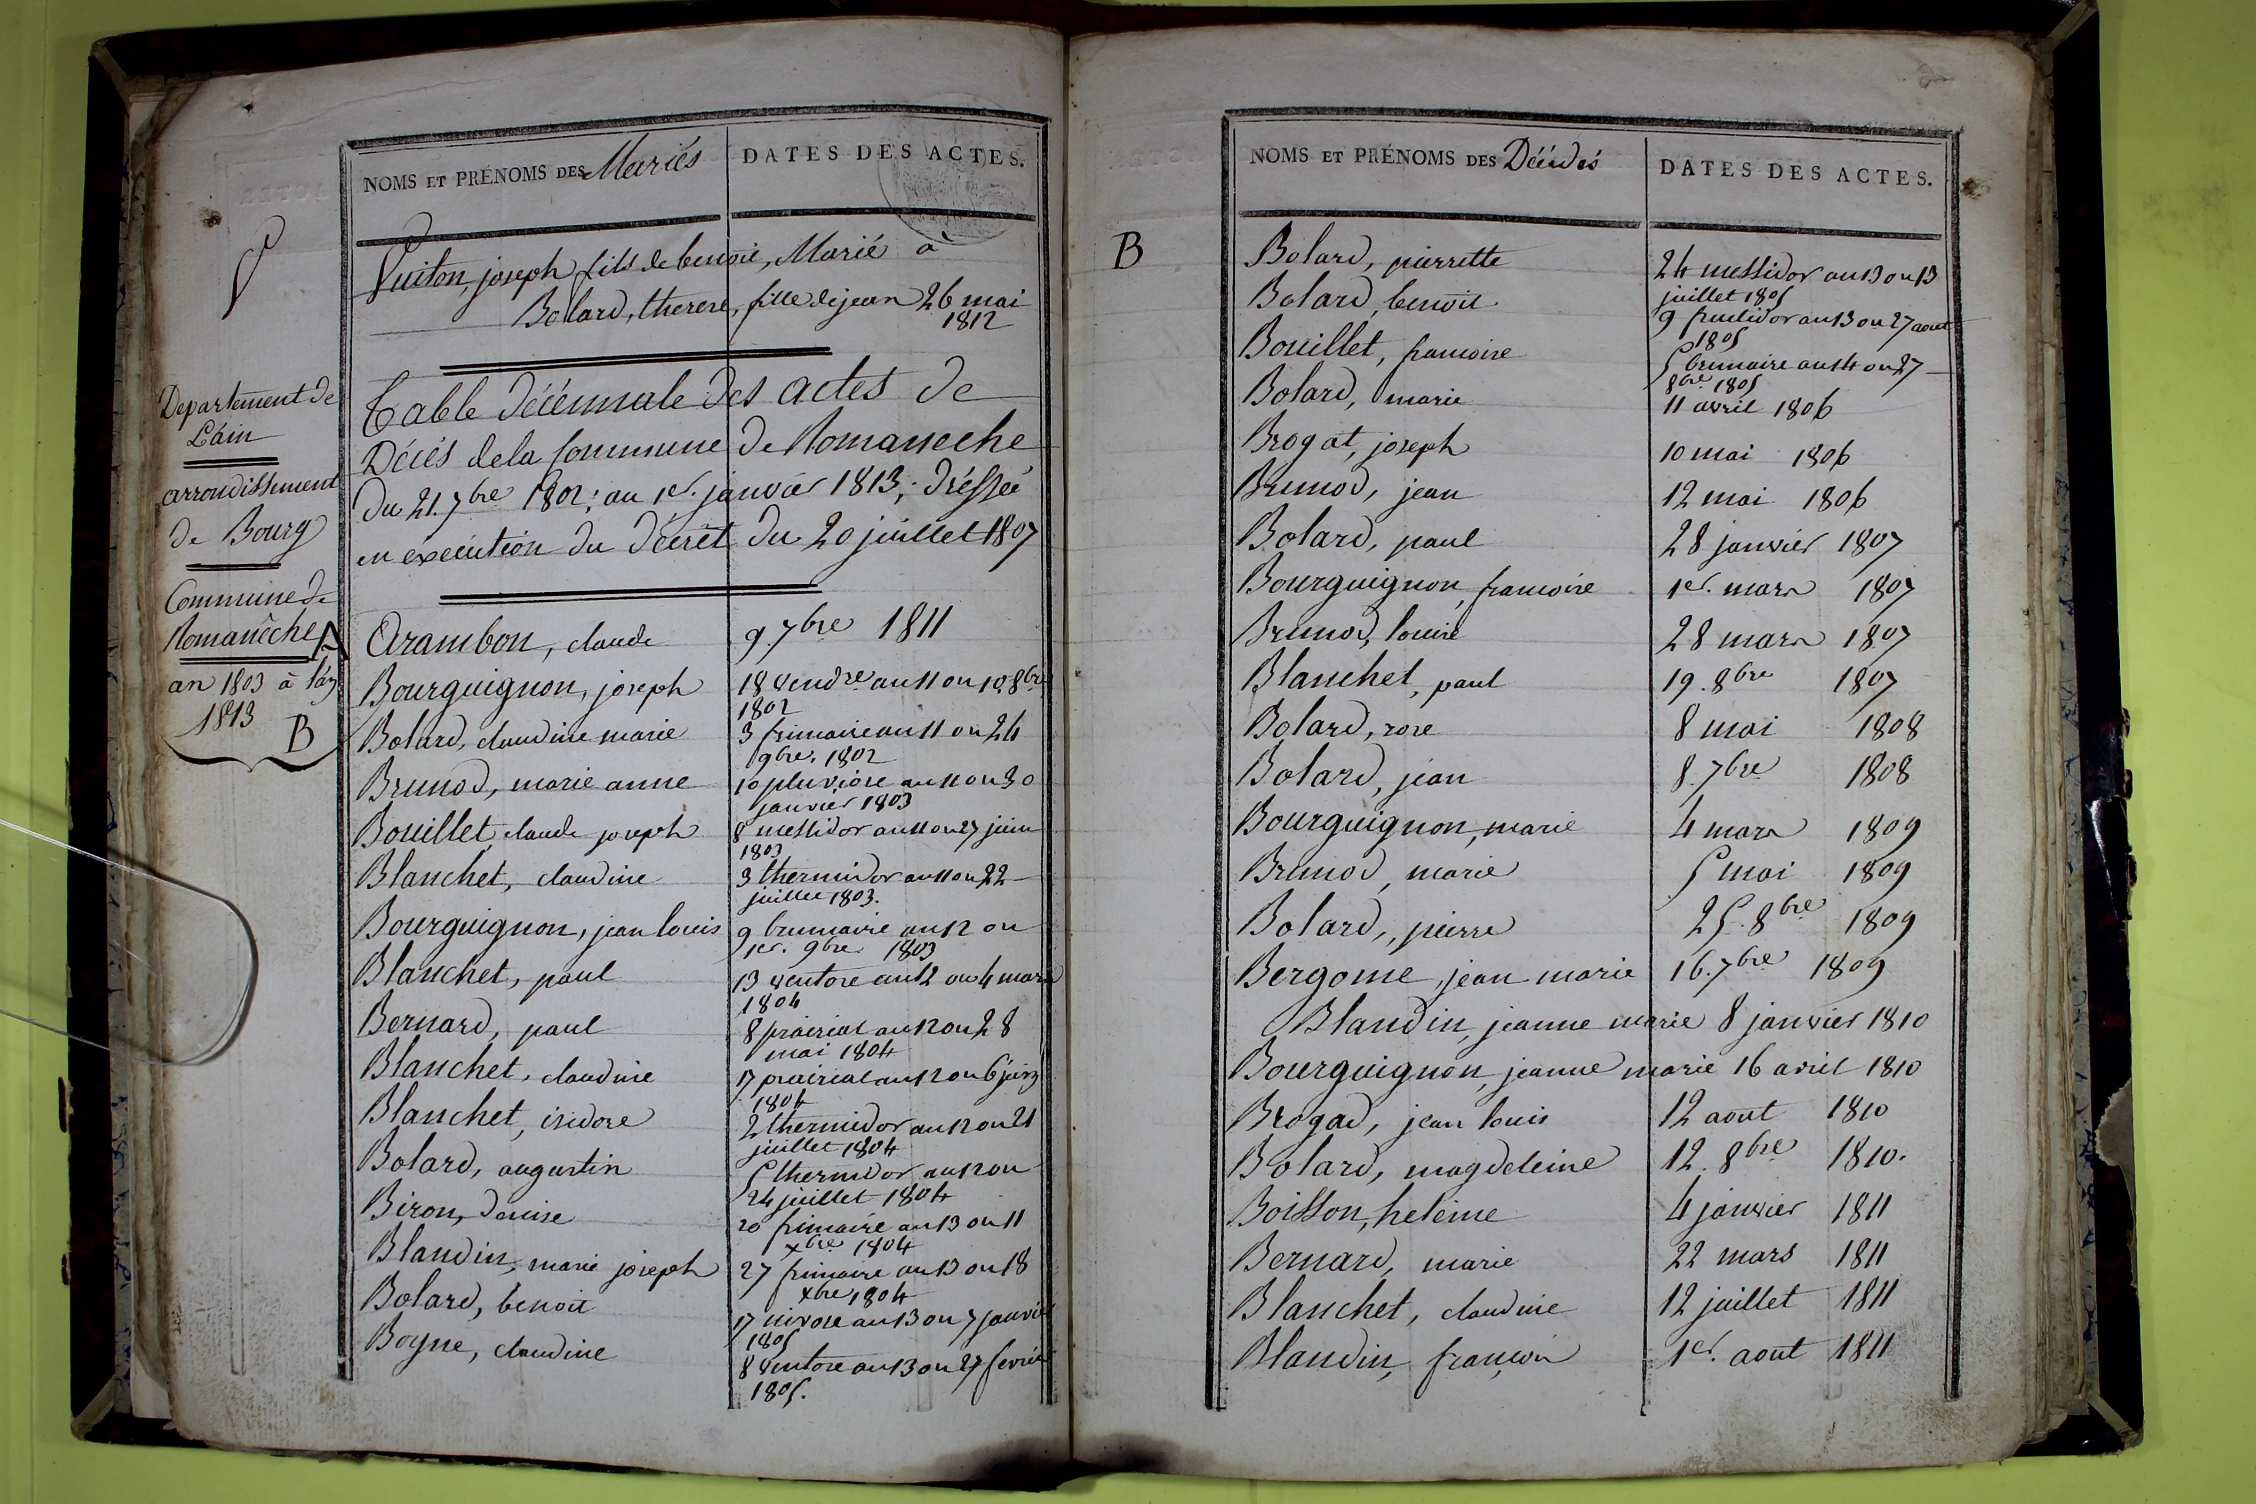 NOMS ET PRÉNOMS DES Mariés
DATES DES ACTES.
V
Vuiton, joseph fils de benoit, Marié à
Bolard, therese, fille de jean 26 mai
1812
Departement de
L'ain
arrondissement
de Bourg
Commune de
Romanêche
an 1803 à l'an
1813
Table décénnale des actes de
Décés de la Commune de Romaneche
Du 21. 7bre 1802; au 1er. janvier 1813, dréssée
en exécution du décret du 20 juillet 1807
A
Arambon, claude 9. 7bre 1811
B
Bourguignon, joseph 18 vendre an 11 ou 10. 8bre
1802
Bolard, claudine marie 3 frimaire an 11 ou 24
9bre. 1802
Brunod, marie anne 10 pluviôse an 11 ou 30
janvier 1803
Bouillet, claude joseph 8 messidor an 11 ou 27 juin
1803
Blanchet, claudine 3 thermidor an 11 ou 22
juillet 1803.
Bourguignon, jean louis 9 brumaire an 12 ou
1er. 9bre. 1803
Blanchet, paul 13 ventose an 12 ou 4 mars
1804
Bernard, paul 8 prairial an 12 ou 28
mai 1804
Blanchet, claudine 17 prairial an 12 ou 6 juin
1804
Blanchet, isidore 2 thermidor an 12 ou 21
juillet 1804
Bolard, augustin 5 thermidor an 12 ou
24 juillet 1804
Biron, denise 20 frimaire an 13 ou 11
xbre 1804
Blandin, marie joseph 27 frimaire an 13 ou 18
xbre 1804
Bolard, benoit 17 nivose an 13 ou 7 janvier
1805
Boyne, claudine 8 ventose an 13 ou 27 fevrier
1805.
NOMS ET PRÉNOMS DES Décédés
DATES DES ACTES.
B
Bolard, pierrette 24 messidor an 13 ou 13
juillet 1805
Bolard, benoit 9 fructidor an 13 ou 27 aout
1805
Bouillet, francoise 5 brumaire an 14 ou 27
8bre 1805
Bolard, marie 11 avril 1806
Brogat, joseph 10 mai 1806
Brunod, jean 12 mai 1806
Bolard, paul 28 janvier 1807
Bourguignon, francoise 1er. mars 1807
Brunod, louise 28 mars 1807
Blanchet, paul 19. 8bre 1807
Bolard, rose 8 mai 1808
Bolard, jean 8. 7bre 1808
Bourguignon, marie 4 mars 1809
Brunod, marie 5 mai 1809
Bolard, pierre 25. 8bre 1809
Bergome, jean marie 16. 7bre 1809
Blandin, jeanne marie 8 janvier 1810
Bourguignon, jeanne marie 16 avril 1810
Brogad, jean louis 12 aout 1810
Bolard, magdeleine 12. 8bre 1810.
Boisson, heleine 4 janvier 1811
Bernard, marie 22 mars 1811
Blanchet, claudine 12 juillet 1811
Blandin, françois 1er. aout 1811